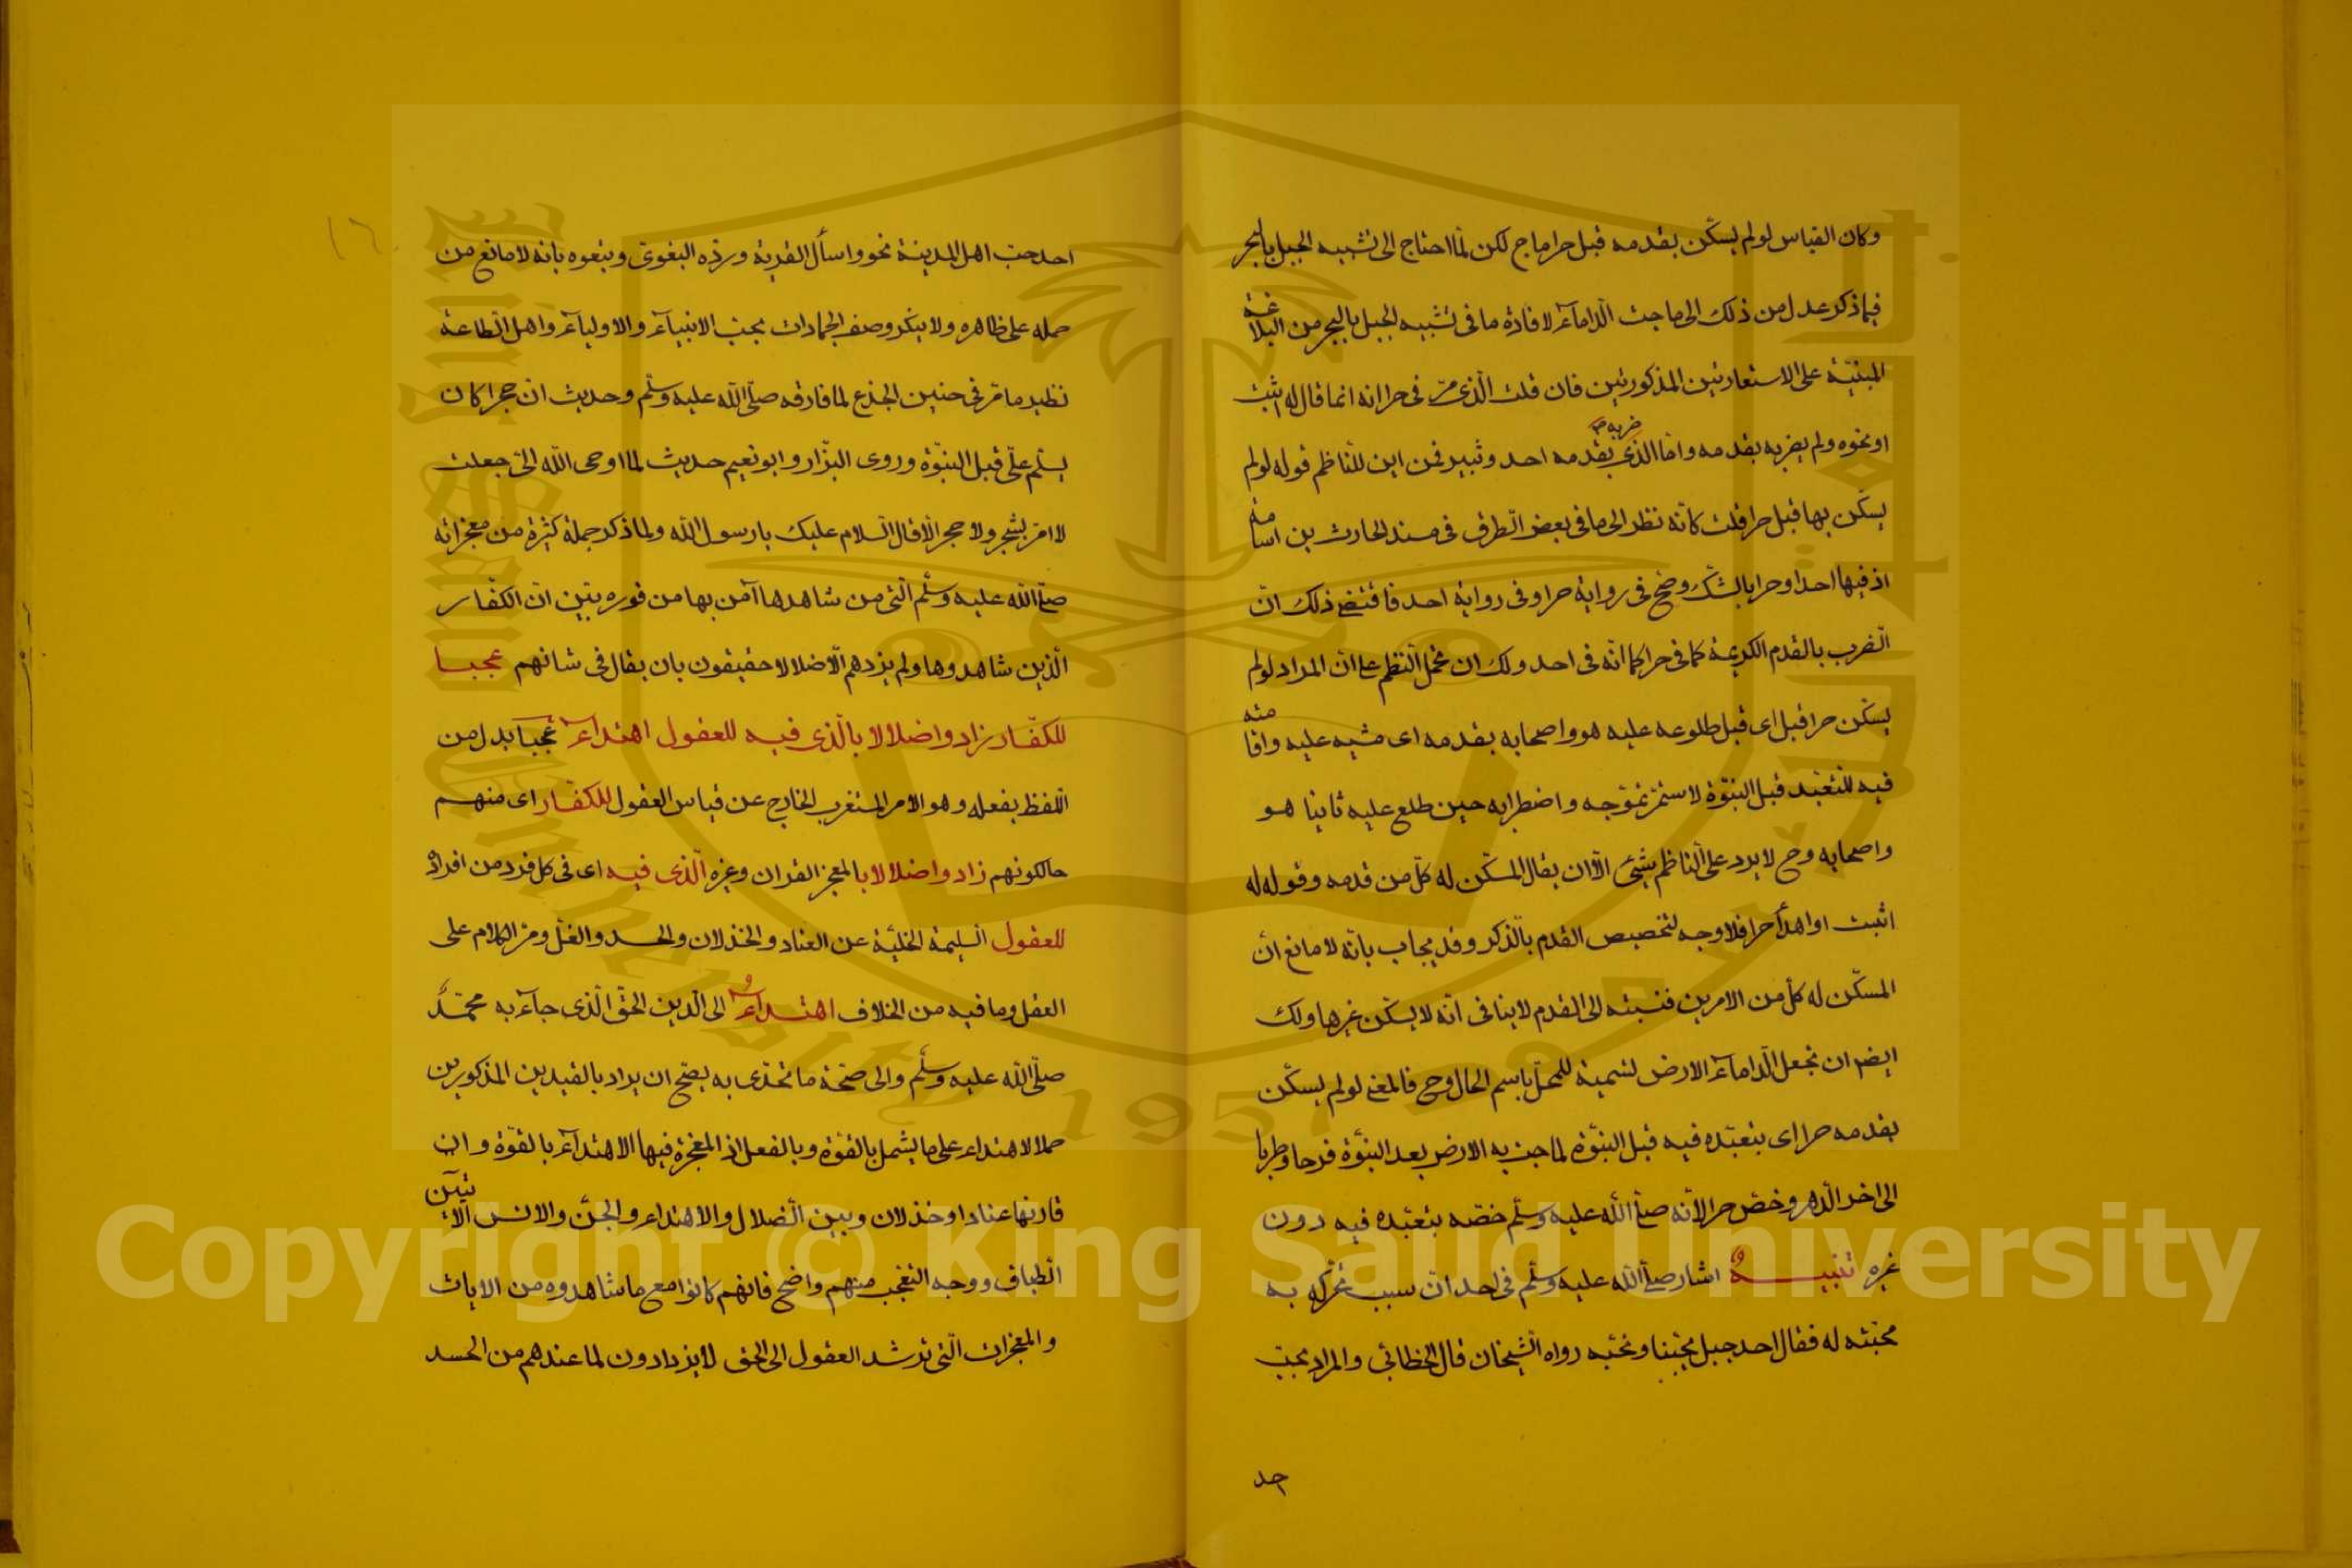 وكان القياس لو لم يسكّن بقدمه قبل حرا ماج لكن لمّا احتاج الى تشبيه الجبل بالبحر
فيما ذكر عدل من ذلك الى ماجت الدامآء لافادة ما فى تشبيه الجبل بالبحر من البلاغة
المبنيّة على الاستعارتين المذكورتين فان قلت الّذى مرّ فى حرا انه انما قال له اثبت
او نحوه ولم يضربه بقدمه وامّا الذى ضربه بقدمه احد وثبير فمن اين للنّاظم قوله لو لم
يسكّن بها قبل حرا قلت كانّه نظر الى ما فى بعض الطرق فى مسند الحارث بن اسامة
اذ فيها احدا وحرا بالشّك وصح فى رواية حرا وفى رواية احد فاقتضى ذلك انّ
الضرب بالقدم الكريمة كما فى حرا كما انّه فى احد ولك ان تحمل النّظم على انّ المراد لو لم
يسكّن حرا قبل اى قبل طلوعه عليه هو واصحابه بقدمه اى مشيه عليه واقامته
فيه للتّعبّد قبل النبوّة لاستمرّ تموّجه واضطرابه حين طلع عليه ثانيا هو
واصحابه وح لا يرد على النّاظم شئ الّا ان يقال المسكّن له كلّ من قدمه وقوله له
اثبت او اهدأ حرا فلا وجه لتخصيص القدم بالذّكر وقد يجاب بانّه لا مانع انّ
المسكّن له كلّ من الامرين فنسبته الى القدم لا ينافى انّه لا يسكّن غيرها ولك
ايضا ان تجعل الّدامآء الارض لتسمية للمحلّ باسم الحال وح فالمعنى لو لم يسكّن
بقدمه حرا اى بتعبّده فيه قبل النبوّة لماجت به الارض بعد النبوّة فرحا وطربا
الى اخر الّدهر وخصّ حرا لانّه صلّى اللّه عليه وسلّم خصّه بتعبّده فيه دون
غيره تنبيه اشار صلّى اللّه عليه وسلّم فى احد انّ سبب تحرّكه به
محبّته له فقال احد جبل يحبّنا ونحبّه رواه الشيخان قال الخطابى والمراد بحبّ
احد
احد حبّ اهل المدينة نحو واسأل القرية وردّه البغوى وتبعوه بانه لا مانع من
حمله على ظاهره ولا ينكر وصف الجمادات بحبّ الانبيآء والاوليآء واهل الطاعة
نظير ما مرّ فى حنين الجذع لما فارقه صلّى اللّه عليه وسلّم وحديث انّ حجرا كان
يسلّم علىّ قبل النبوّة وروى البزّار وابو نعيم حديث لما اوحى اللّه الىّ جعلت
لا امرّ بشجر ولا حجر الّا قال السّلام عليك يا رسول اللّه ولما ذكر جملة كثيرة من معجزاته
صلّى اللّه عليه وسلّم الّتى من شاهدها آمن بها من فوره بيّن انّ الكفّار
الّذين شاهدوها ولم يزدهم الّا ضلالا حقيقون بان يقال فى شانهم عجبا
للكفّار زادوا ضلالا بالّذى فيه للعقول اهتدآء عجبا بدل من
اللفظ بفعله وهو الامر المستغرب الخارج عن قياس العقول للكفّار اى منهم
حالكونهم زادوا ضلالا بالمعجز القران وغيره الّذى فيه اى فى كل فرد من افراده
للعقول السّليمة الخليّة عن العناد والخذلان والحسد والغلّ ومرّ الكلام على
العقل وما فيه من الخلاف اهتدآءٌ الى الّدين الحقّ الّذى جآء به محمّد
صلّى اللّه عليه وسلّم والى صحّة ما تحدّى به يصحّ ان يراد بالقيدين المذكورين
حملا لاهتداء على ما يشمل بالقوّة وبالفعل اذ المعجزة فيها الاهتدآء بالقوّة وان
قارنها عناد او خذلان وبين الضلال والاهتداء والجنّ والانس الآتيين
الطباق ووجه التعجّب منهم واضح فانهم كانوا مع ما شاهدوه من الايات
والمعجزات الّتى ترشد العقول الى الحق لا يزدادون لما عندهم من الحسد
Copyright © King Saud University
King Saud University
1957